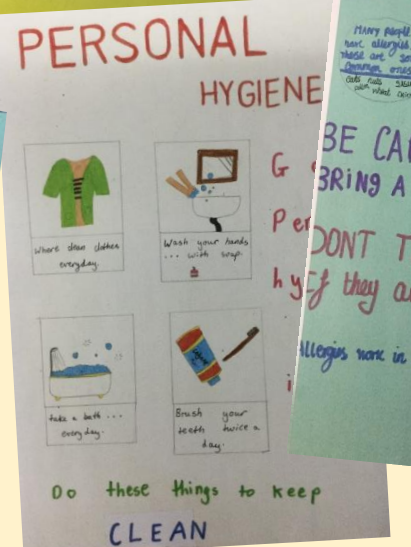 PERSONAL
HYGIENE
Where clean clothes
everyday.
Wash your hands
... with soap.
take a bath ...
everyday.
Brush your
teeth twice a
day.
G
Per
hy
i
Do these things to keep
CLEAN
MANY people
have allergies
these are so
common ones
cats nuts
BE CA
BRING A
DONT T
If they a
Allergies work in